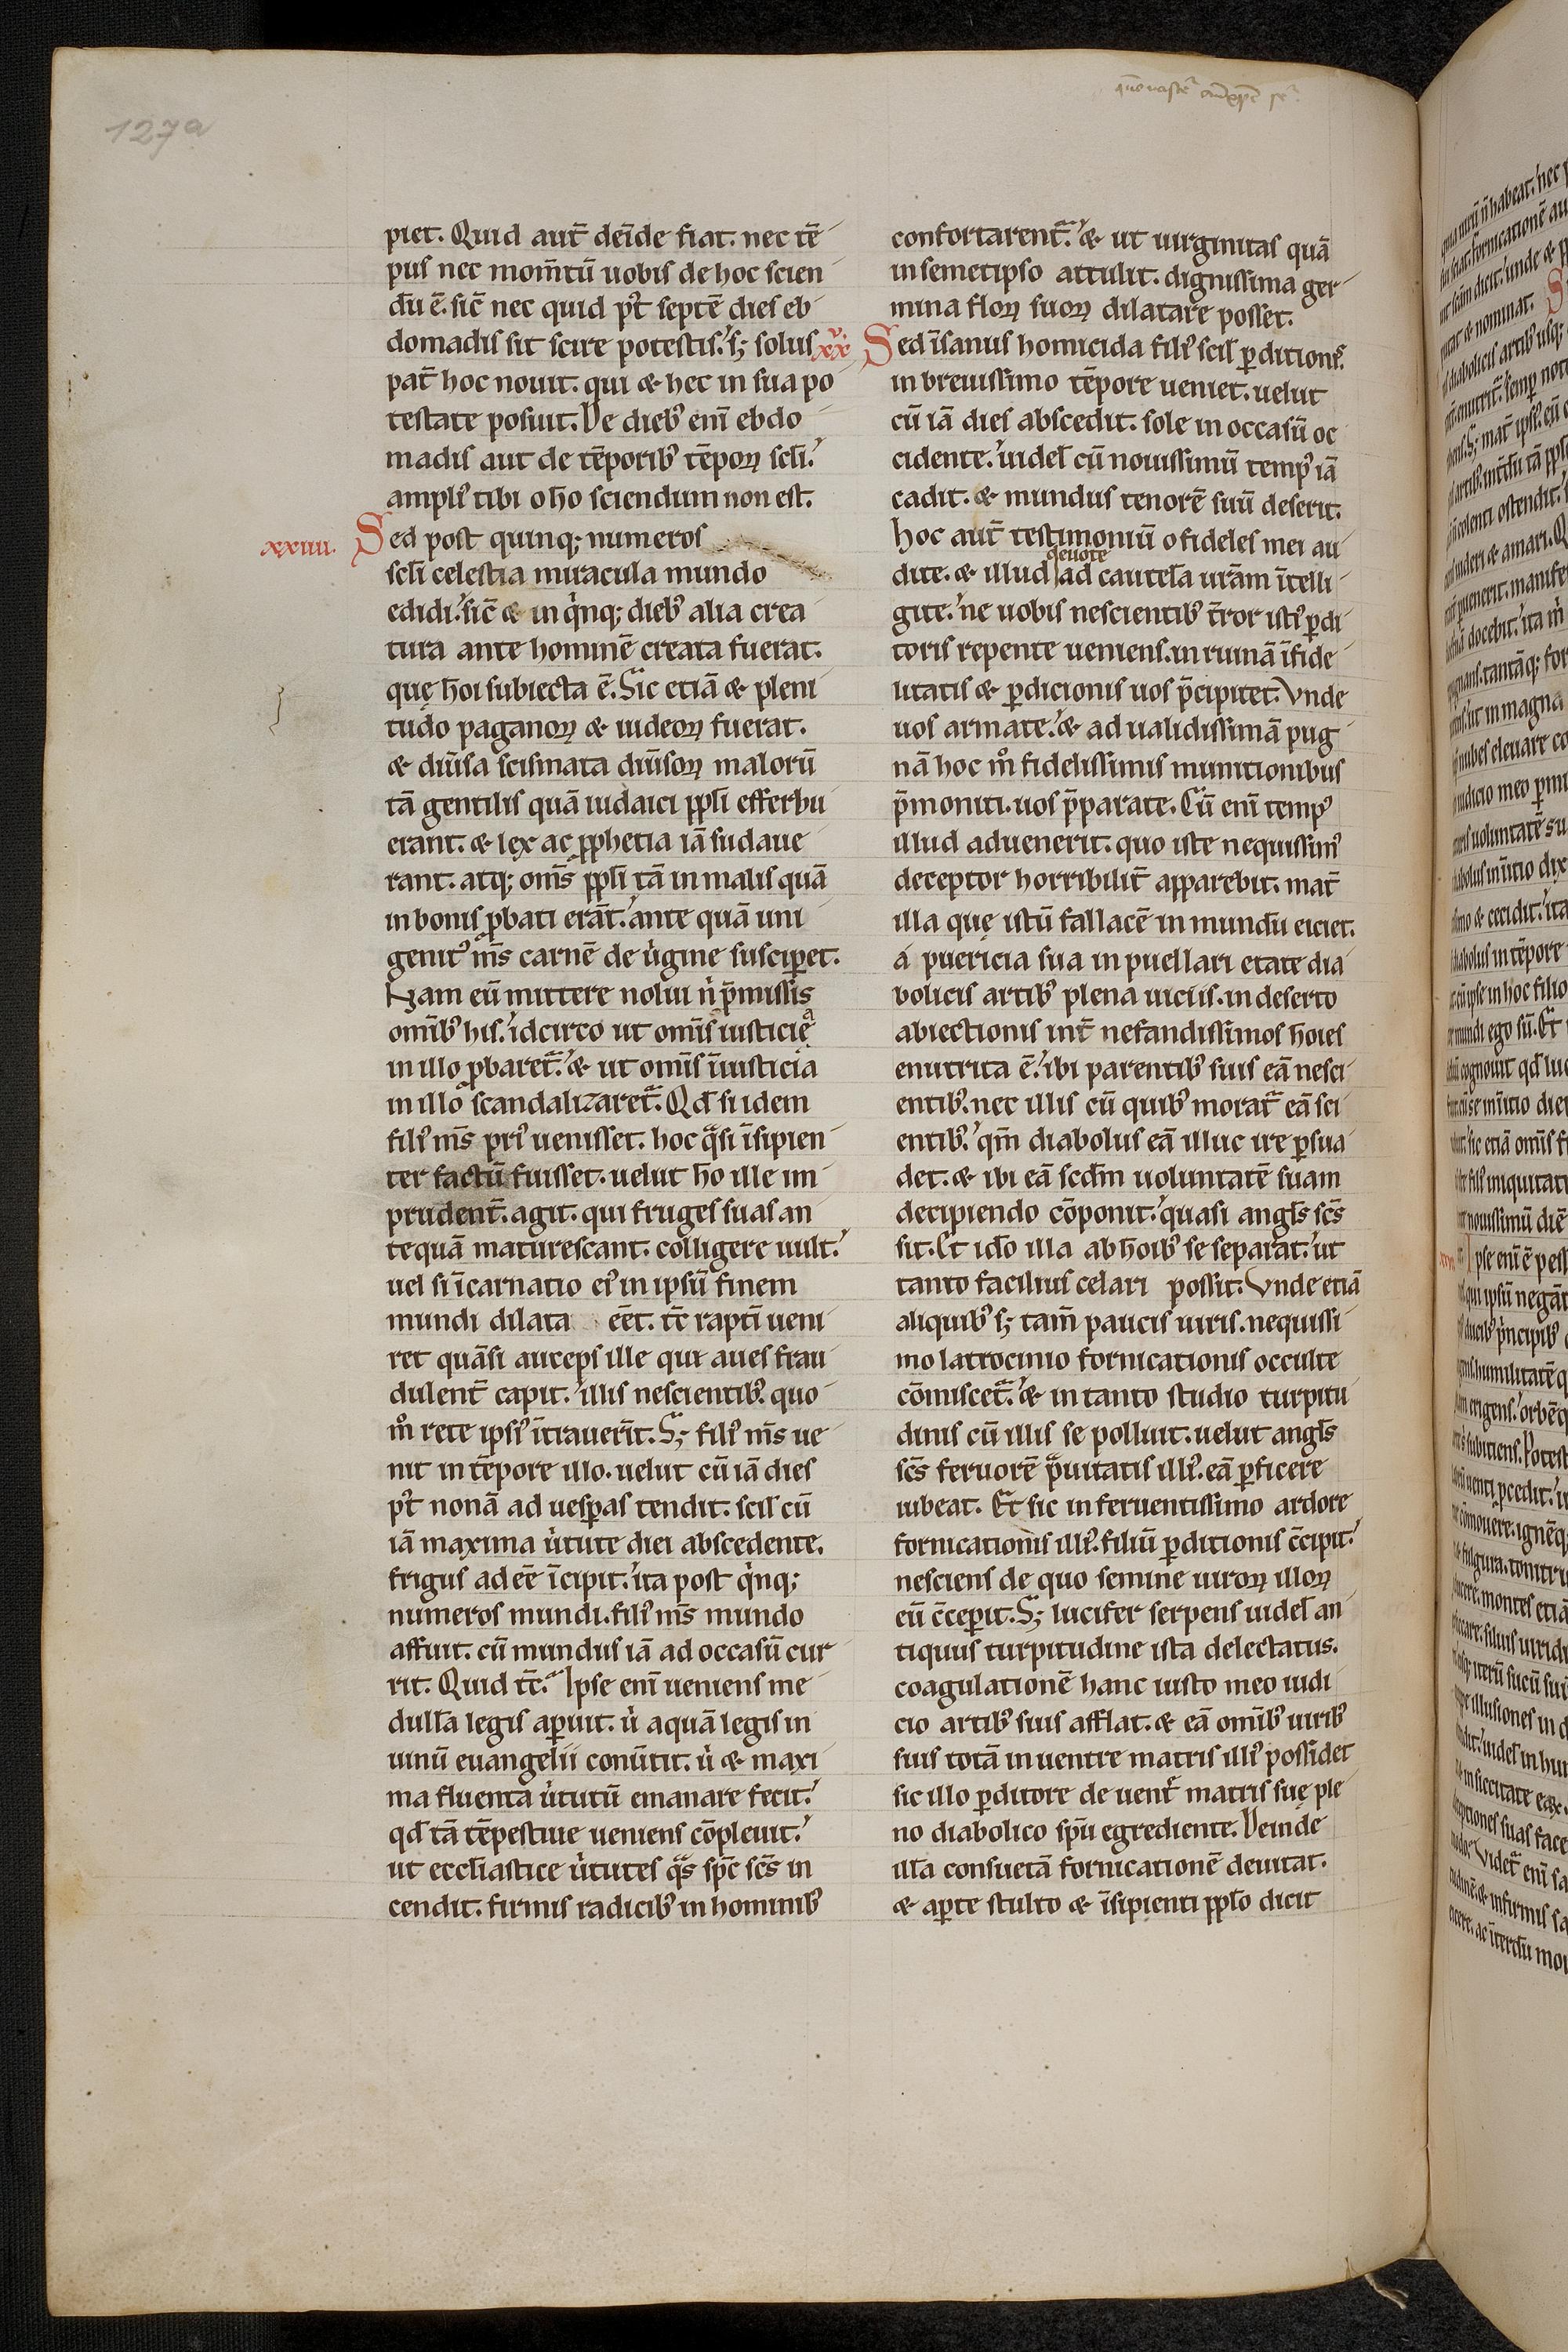 127a
piet. Quid aut̄ deīde fiat. nec tē
pus nec mom̄tū uobis de hoc scien
dū ē. sic̄ nec quid pꝰt septē dies eb
domadis sit scire potestis. sꝫ solus
pat̄ hoc nouit. qui & hec in sua po
testate posuit. De diebꝰ eni̅ ebdo
madis aut de tēporibꝰ tēpoꝝ scl̄i.
ampliꝰ tibi o ho sciendum non est.
xxiiii. Sed post quinqꝫ numeros
scl̄i celestia miracula mundo
edidi. sic̄ & in qͥnqꝫ diebꝰ alia crea
tura ante hominē creata fuerat.
quę ho̅i subiecta ē. Sic etiā & pleni
tudo paganoꝝ & iudeoꝝ fuerat.
& diūsa scismata diūsoꝝ maloꝝū
tā gentilis quā iudaici ppl̄i efferbu
erant. & lex ac ꝓphetia iā sudaue
rant. atqꝫ om̄s ppl̄i tā in malis quā
in bonis ꝓbati erāt. ante quā uni
genitꝰ m̄s carnē de uͥgine susciꝑet.
Nam eū mittere nolui nͥ p̄missis
omīb his. idcirco ut om̄is iusticięͣ
in illo ꝓbaret᷑. & ut om̄is īiusticia
in illo scandalizaret᷑. Qd̄ si idem
filiꝰ m̄s priꝰ uenisset. hoc qͣsi īsipien
ter factū fuisset. uelut ho̅ ille im
prudent̄. agit. qui fruges suas an
tequā maturescant. colligere uult.
uel si īcarnatio eiꝰ in ipsū finem
mundi dilata eēt. tc̄ raptī ueni
ret quāsi auceps ille qui aues frau
dulent̄ capit. illis nescientibꝰ. quo
mͦ rete ipsiꝰ ītrauerīt. Sꝫ filiꝰ m̄s ue
nit in tēpore illo. uelut cū iā dies
pꝰt nonā ad uesꝑas tendit. scil̄ cū
iā maxima uͥtute diei abscedente.
frigus adeē īcipit. ita post qͥnqꝫ
numeros mundi. filiꝰ m̄s mundo
affuit. cū mundus iā ad occasū cur
rit. Quid tc̄. Ipse eni̅ ueniens me
dullā legis aꝑuit. uͥ aquā legis in
uinū euangelii conūtit. uͥ & maxi
ma fluenta uͥtutū emanare fecit.
qd̄ tā tēpestiue ueniens cōpleuit.
ut eccl̄iastice uͥtutes qͣs spc̄ sc̄s in
cendit. firmis radicibꝰ in hominibꝰ
confortarent᷑. & ut uirginitas quā
in semetipso attulit. dignissima ger
mina floꝝ suoꝝ dilatare posset.
xxv. Sed īsanus homicida filiꝰ scil̄ ꝑditionis.
in breuissimo tēpore ueniet. uelut
cū iā dies abscedit. sole in occasū oc
cidente. uidel̄ cū nouissimū tempꝰ iā
cadit. & mundus tenorē suū deserit.
hoc aut̄ testimoniū o fideles mei au
devote
dite. & illud ad cautelā ur̄am ītelli
gite. ne uobis nescientibꝰ t̄ror istiꝰ ꝑdi
toris repente ueniens. in ruinā īfide
litatis & ꝑdicionis uos p̄cipitet. Vnde
uos armate. & ad ualidissimā pug
nā hoc mͦ fidelissimis munitionibus
p̄moniti. uos p̄parate. Cū eni̅ tempꝰ
illud aduenerit. quo iste nequissimꝰ
deceptor horribilit̄ apparebit. mat̄
illa quę istū fallacē in mundū eiciet.
á puericia sua in puellari etate dia
bolicis artibꝰ plena uiciis. in deserto
abiectionis int̄ nefandissimos ho̅ies
enutrita ē. ibi parentibꝰ suis eā nesci
entibꝰ. nec illis cū quibꝰ morat᷑ eā sci
entibꝰ. qm̄ diabolus eā illuc ire ꝑsua
det. & ibi eā scd̄m uoluntatē suam
decipiendo cōponit. quasi angl̄s sc̄s
sit. Et id̄o illa ab ho̅ibꝰ se separat. ut
tanto facilius celari possit. Vnde etiā
aliquibꝰ sꝫ tam̄ paucis uiris. nequissi
mo latrocinio fornicationis occulte
cōmiscet᷑. & in tanto studio turpitu
dinis cū illis se polluit. uelut angl̄s
sc̄s feruorē pͣuitatis illiꝰ. eā ꝑficere
iubeat. Et sic in feruentissimo ardore
fornicationis illiꝰ. filiū ꝑditionis c̄cipit.
nesciens de quo semine uiroꝝ illoꝝ
eū c̄ceꝑit. Sꝫ lucifer serpens uidel̄ an
tiquus turpitudine ista delectatus.
coagulationē hanc iusto meo iudi
cio artibꝰ suis afflat. & eā omībꝰ uiribꝰ
suis totā in uentre matris illiꝰ possidet
sic illo ꝑditore de uent̄ matris suę ple
no diabolico spū egrediente. Deinde
illā consuetā fornicationē deuitat.
& aꝑte stulto & īsipienti ppl̄o dicit